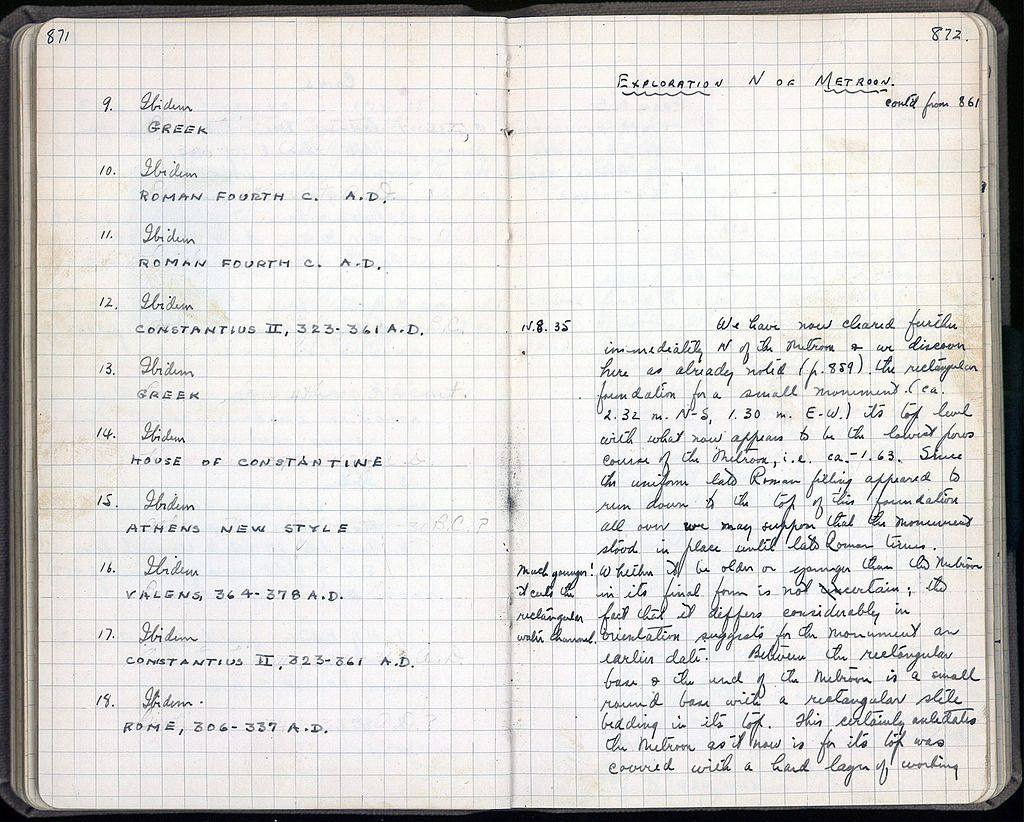 871
9. Ibidem
GREEK
10. Ibidem
ROMAN FOURTH C. A.D.
11. Ibidem
ROMAN FOURTH C. A.D.
12. Ibidem
CONSTANTIUS II, 323-361 A.D.
13. Ibidem
GREEK
14. Ibidem
HOUSE OF CONSTANTINE
15. Ibidem
ATHENS NEW STYLE
16. Ibidem
VALENS, 364-378 A.D.
17. Ibidem
CONSTANTIUS II, 323-361 A.D.
18. Ibidem.
ROME, 306-337 A.D.
872.
EXPLORATION N OF METROON.
contd from 861
8. 35
We have now cleared further
immediately N of the Metroon & we discover
here as already noted (p. 859) the rectangular
foundation for a small monument (ca.
2.32 m. N-S, 1.30 m. E-W.) its top level
with what now appears to be the lowest poros
course of the Metroon, i.e. ca. -1.63. Since
the uniform late Roman filling appeared to
run down to the top of this foundation
all over we may suppose that the monument
stood in place until late Roman times.
Whether it be older or younger than the Metroon
in its final form is not uncertain; the
fact that it differs considerably in
orientation suggests for the monument an
earlier date. Between the rectangular
base & the end of the Metroon is a small
round base with a rectangular stele
bedding in its top. This certainly antedates
the Metroon as it now is for its top was
covered with a hard layer of working
Much younger!
it cuts the
rectangular
water channel.